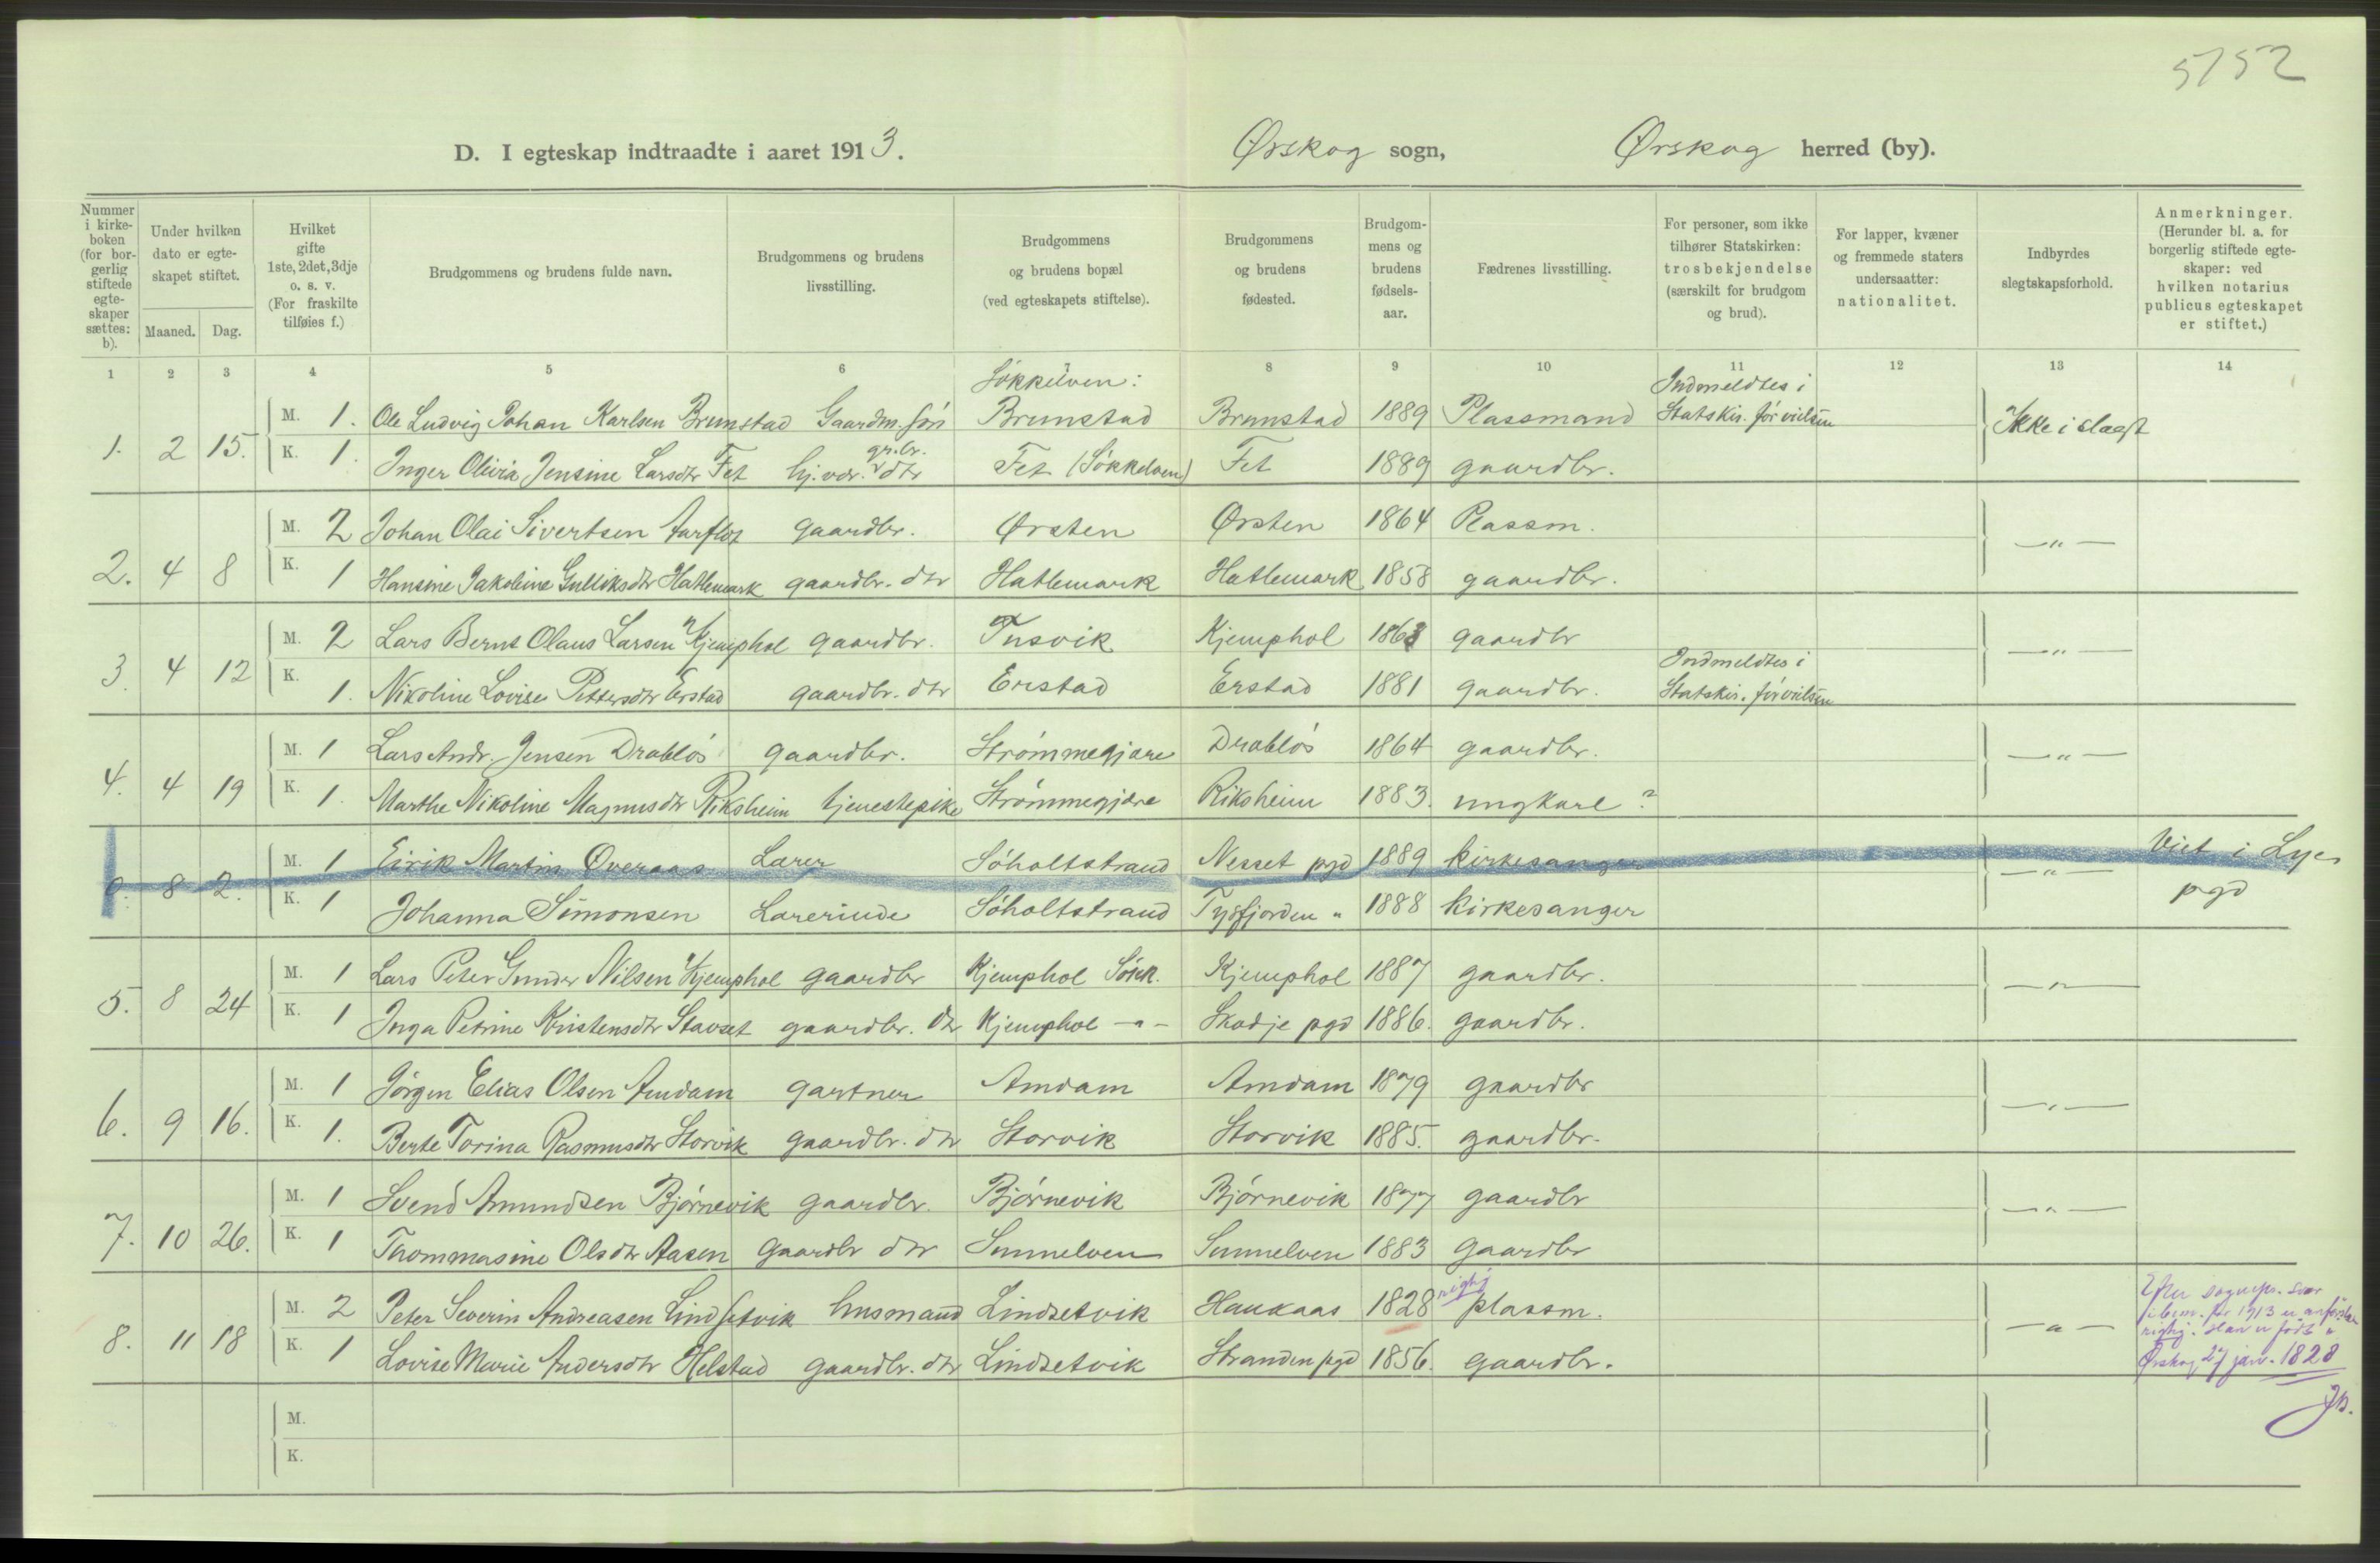 5752
D. I egteskap indtraadte i aaret 1913. Ørskog sogn, Ørskog herred (by).
Nummer i kirke-boken (for bor-gerlig stiftede egte-skaper sættes: b).
Under hvilken dato er egte-skapet stiftet.
Maaned. Dag.
Hvilket gifte 1ste, 2det, 3dje o. s. v. (For fraskilte tilføies f.)
Brudgommens og brudens fulde navn.
Brudgommens og brudens livsstilling.
Brudgommens og brudens bopæl (ved egteskapets stiftelse).
Brudgommens og brudens fødested.
Brudgom-mens og brudens fødsels-aar.
Fædrenes livsstilling.
For personer, som ikke tilhører Statskirken: trosbekjendelse (særskilt for brudgom og brud).
For lapper, kvæner og fremmede staters undersaatter: nationalitet.
Indbyrdes slegtskapsforhold.
Anmerkninger. (Herunder bl. a. for borgerlig stiftede egte-skaper: ved hvilken notarius publicus egteskapet er stiftet.)
1 2 3 4 5 6 8 9 10 11 12 13 14
Søkkelven: Indmeldtes i
1. 2 15. M. 1. Ole Ludvig Johan Karlsen Brunstad Gaardm. søn Brunstad Brunstad 1889 Plassmand Statskir. før vielsen Ikke i slægt
K. 1. Inger Olivia Jensine Larsdtr Fet hj.vær. gr.br. dtr Fet (Søkkelven) Fet 1889 gaardbr.
2. 4 8 M. 2 Johan Olai Sivertsen Aarflot gaardbr. Ørsten Ørsten 1864 Plassm. —"—
K. 1 Hansine Jakobine Gulliksdtr Hatlemark gaardbr. dtr Hatlemark Hatlemark 1858 gaardbr.
3. 4 12 M. 2 Lars Bernt Olaus Larsen Kjemphol gaardbr. Tusvik Kjemphol 1863 gaardbr —"—
Indmeldtes i
K. 1. Nikoline Lovise Pettersdtr Erstad gaardbr. dtr Erstad Erstad 1881 gaardbr. Statskir. før vielsen
4. 4 19 M. 1 Lars Andr. Jensen Drabløs gaardbr. Strømmegjære Drabløs 1864 gaardbr. —"—
K. 1. Marthe Nikoline Magnusdtr Riksheim tjenestepike Strømmegjære Riksheim 1883. ungkarl?
0. 8 2. M. 1 Eirik Martin Øveraas Lærer Søholtstrand Nesset pgd 1889 kirkesanger —"— Viet i Lye
pgd
K. 1 Johanna Simonsen Lærerinde Søholtstrand Tysfjorden " 1888 kirkesanger
5. 8 24 M. 1 Lars Peter Gunder Nilsen Kjemphol gaardbr Kjemphol Søkk. Kjemphol 1887 gaardbr. —"—
K. 1 Inga Petrine Kristensdtr Stavset gaardbr. dtr Kjemphol —"— Skodje pgd 1886. gaardbr.
6. 9 16. M. 1 Jørgen Elias Olsen Amdam gartner Amdam Amdam 1879 gaardbr —"—
K. 1. Berte Torina Rasmusdtr Storvik gaardbr. dtr Storvik Storvik 1885. gaardbr.
7. 10 26. M. 1 Svend Amundsen Bjørnevik gaardbr. Bjørnevik Bjørnevik 1877 gaardbr —"—
K. 1 Thommasine Olsdtr Aasen Gaardbr dtr Sunnelven Sunnelven 1883 Gaardbr
8. 11 18 M. 2 Peter Severin Andreasen Lindsetvik husmand Lindsetvik Haukaas 1828 rigtig plassm. —"—
K. 1 Lovise Marie Andersdtr Helstad gaardbr. dtr Lindsetvik Stranden pgd 1856. gaardbr.
Efter sognepr. svar
1913 er anførslen
rigtig. Han er født i
Ørskog 27 jan. 1828
M.
K.